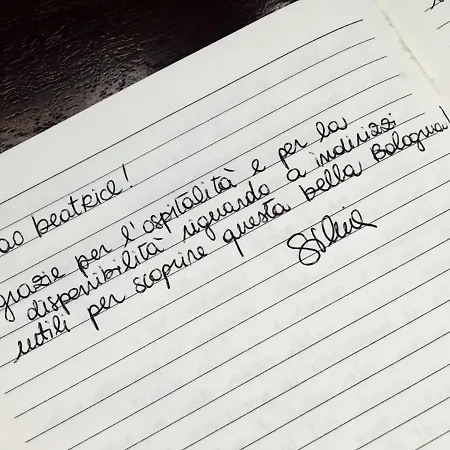 ao beatrice!
grazie per l'ospitalità e per la
disponibilità riguardo a indirizzi
utili per scoprire questa bella Bologna!
Silvia